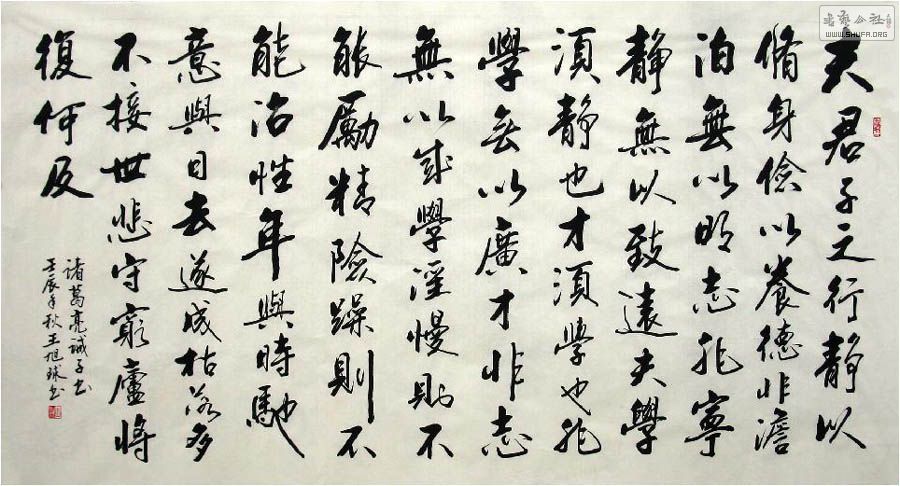 夫君子之行静以
脩身儉以養德非澹
泊無以明志非寧
静無以致遠夫學
須静也才須學也非
學無以廣才非志
無以成學淫慢則不
能勵精險躁則不
能治性年與時馳
意與日去遂成枯落多
不接世悲守窮廬將
復何及
諸葛亮誡子書
壬辰年秋王旭球書
书艺公社
WWW.SHUFA.ORG